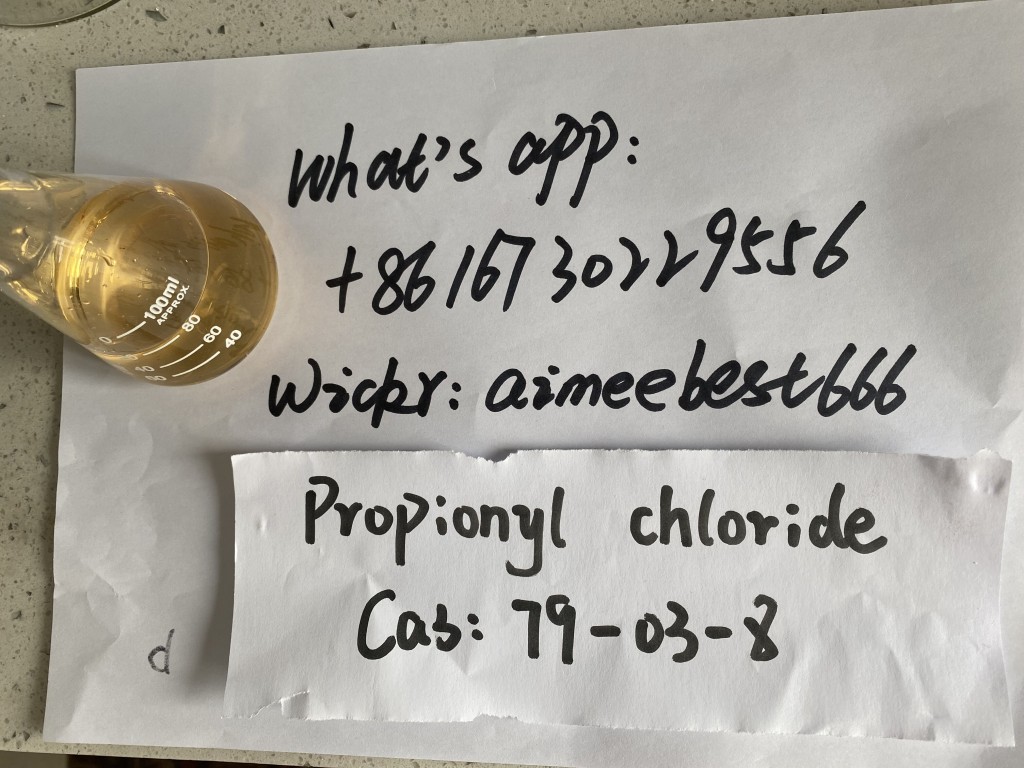 What's app:
+8616730229556
Wickr: aimeebest666
100ml
APPROX.
80
60
40
Propionyl chloride
Cas: 79-03-8
d